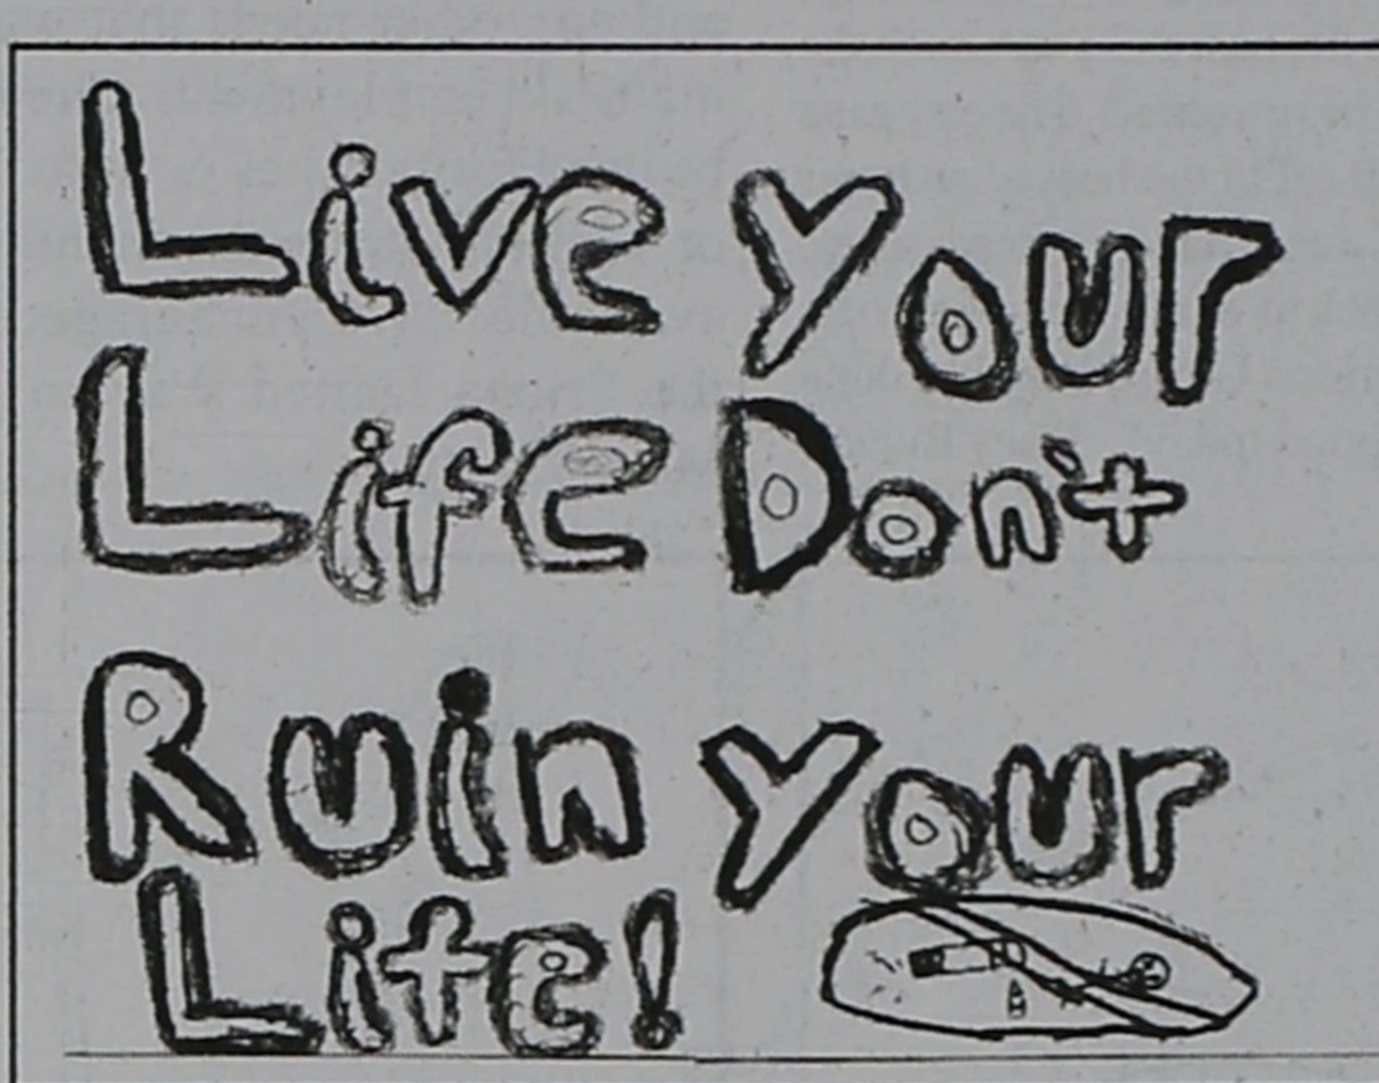 Live Your
Life Don't
Ruin Your
Life!